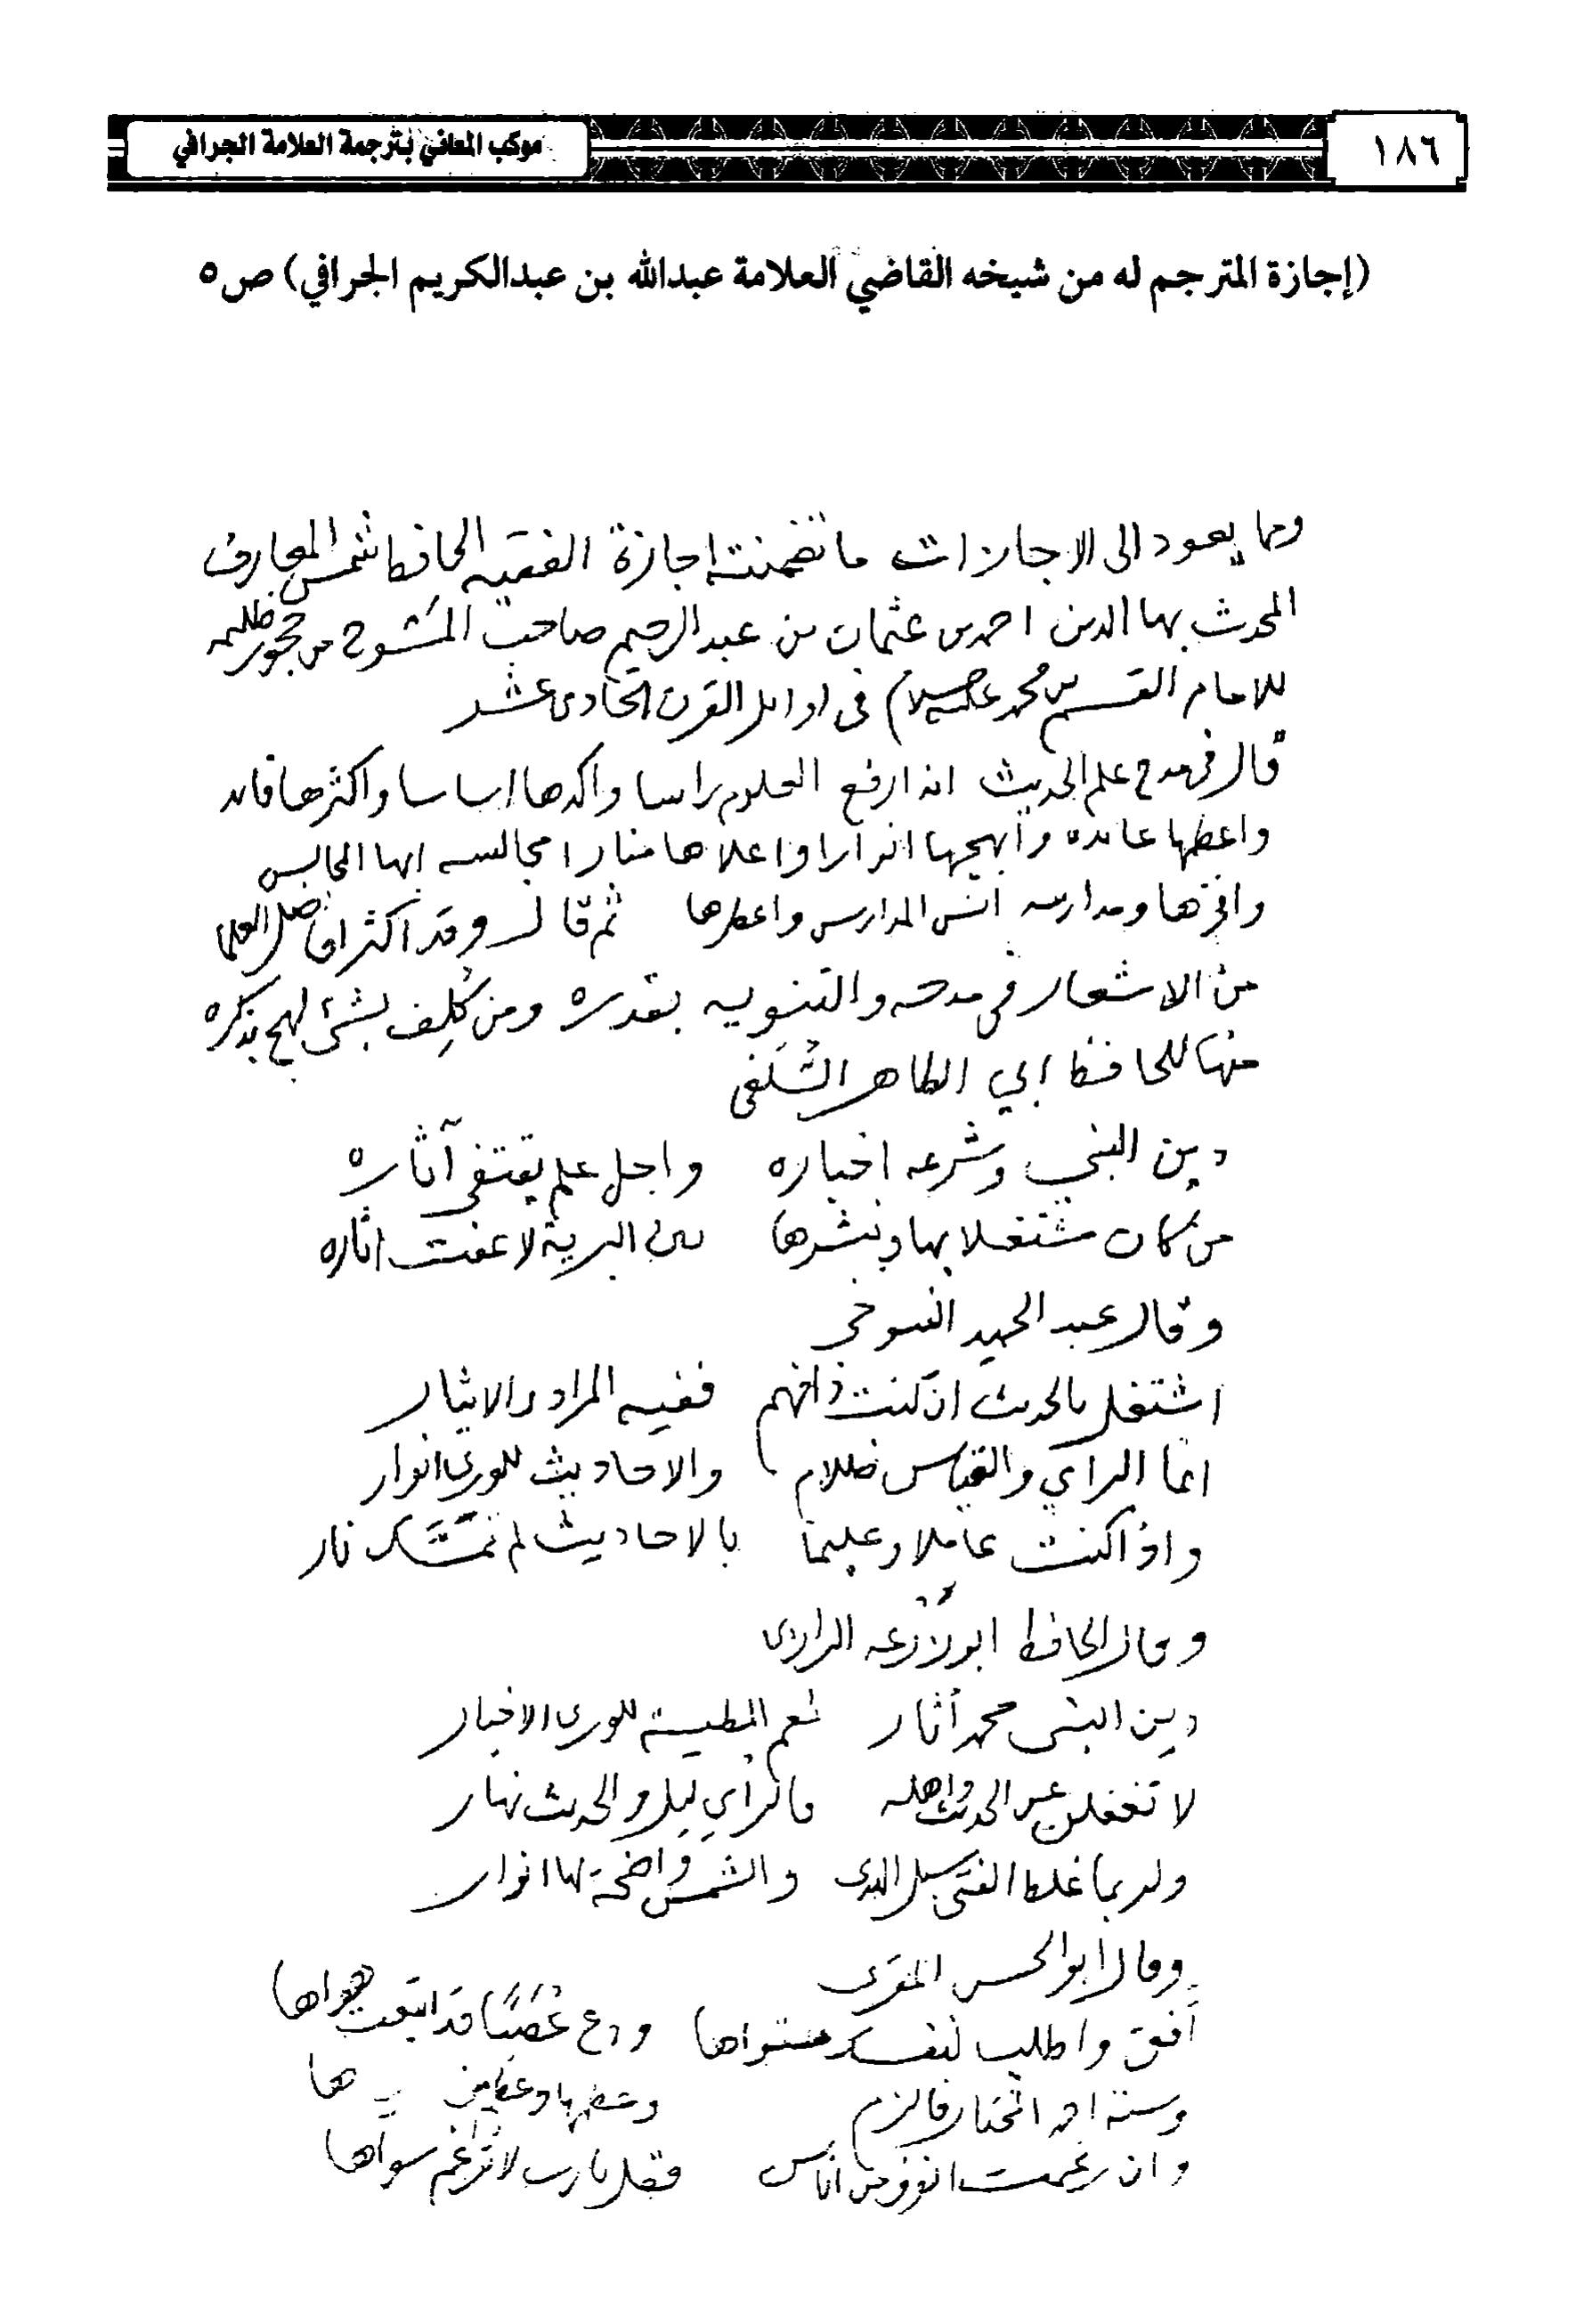 ١٨٦
موكب المعاني بترجمة العلامة الجرافي
(إجازة المترجم له من شيخه القاضي العلامة عبدالله بن عبدالكريم الجرافي) ص٥
ومما يعود الى الاجازات ما تضمنته اجازة الفقيه الحافظ شمس المعارف
المحدث بها الدين احمد بن عثمان بن عبد الرحيم صاحب المشوح من حجور ظليمه
للامام القسم بن محمد عليه السلام في اوايل القرن الحادي عشر
قال في مدح علم الحديث انه ارفع العلوم راسا واكدها اساسا واكثرها فايده
واعظمها عايده وابهجها انوارا واعلاها منارا مجالسه ابها المجالس
وافخرها ومدارسه انس المدارس واعطرها ثم قال وقد اكثر افاضل العلما
من الاشعار في مدحه والتنويه بقدره ومن كلِف بشئ لهج بذكره
منها للحافظ ابي الطاهر السِّلَفي
دين النبي وشرعه اخباره واجل علم يقتفى آثاره
من كان مشتغلا بها وبنشرها بين البرية لا عفت اثاره
وقال عبد الحميد
اشتغل بالحديث ان كنت ذا فهم ففيه المراد والايثار
انما الراي والقياس ظلام والاحاديث للورى انوار
واذا كنت عاملا وعليما بالاحاديث لم تمسَّك نار
وقال الحافظ ابو زرعه الرازي
دين النبي محمد آثار نعم المطية للورى الاخبار
لا تغفلن عن الحديث واهله فالرأي ليل والحديث نهار
ولربما غلط الفتى سبل الهدى والشمس واضحة لها انوار
وقال ابو الحسن المقري
أفق واطلب لنفسك مستواها ودع غصبًا قد اتبعت هواها
وسنة احمد المختار فالزم وعظمها وعظم ها
وان رغمت انوف من اناس فقل يا رب لا ترغم سواها